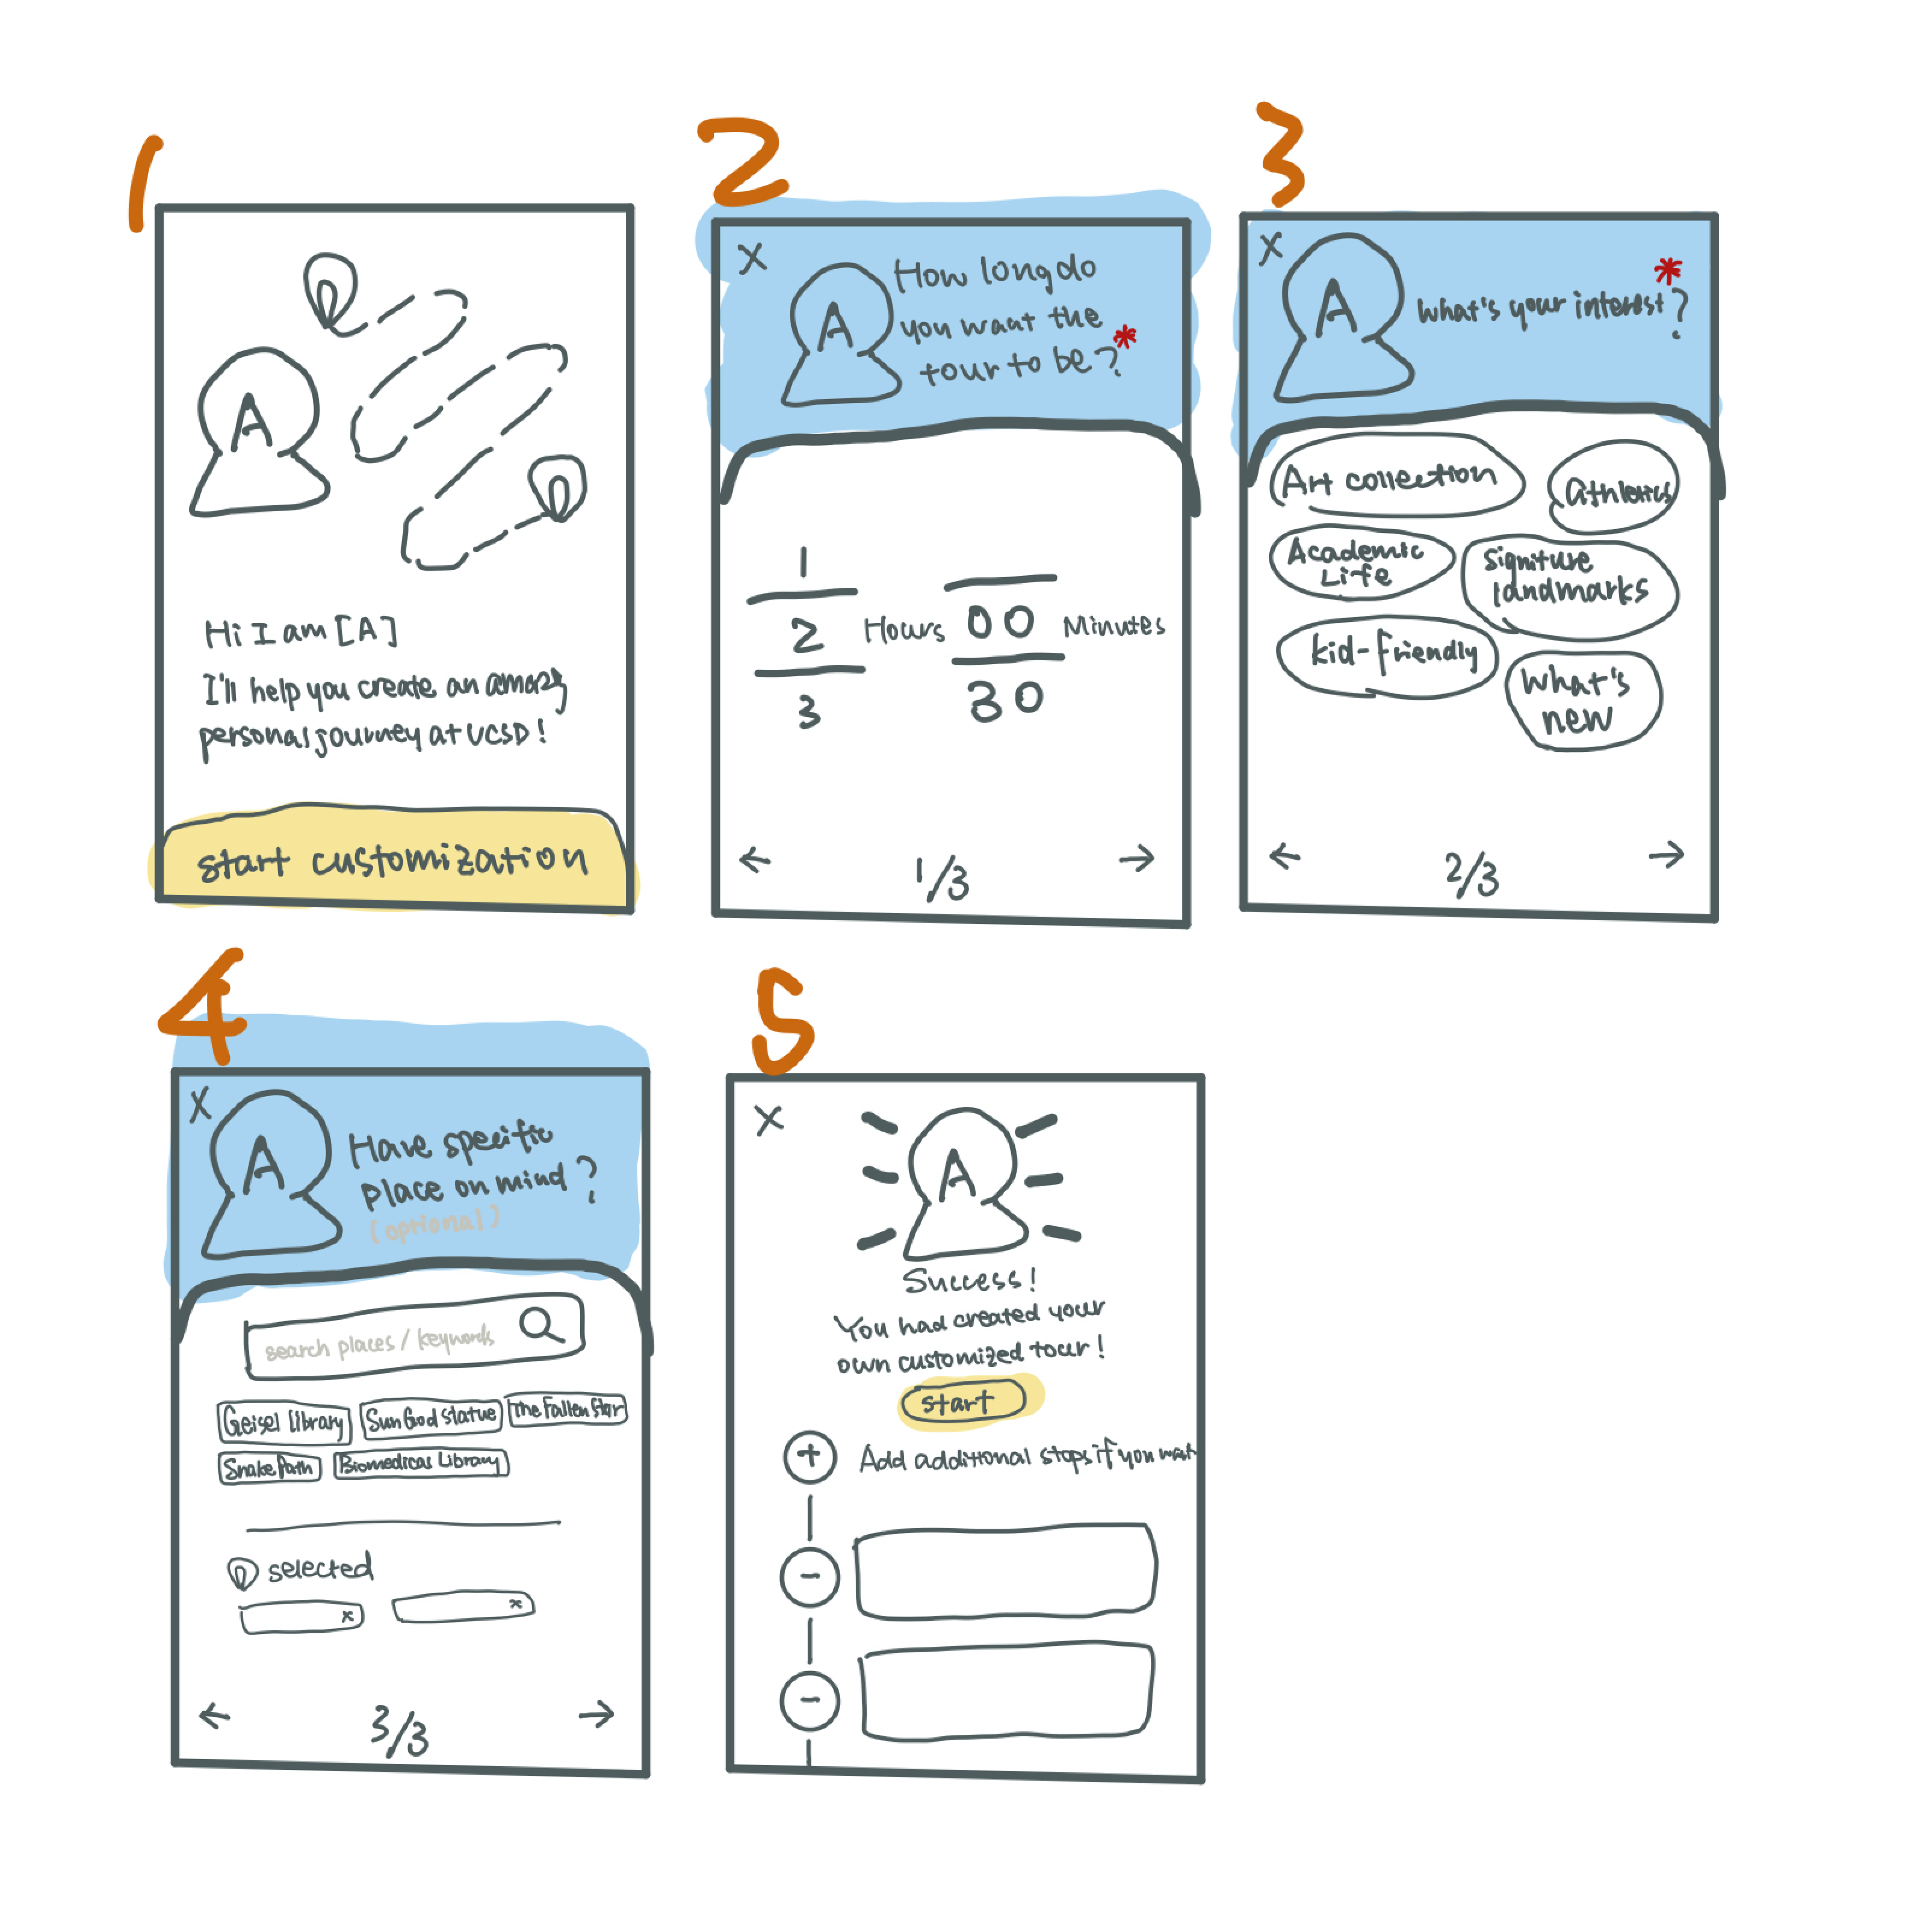 1
A
Hi I am [A]
I'll help you create an amazing
personal journey at UCSD!
start customization
2
X
A
How long do
you want the
tour to be?*
1
2 Hours 00 Minutes
3 30
← 1/3 →
3
X
A
What's your interest*?
Art collection
athletics
Academic
Life
Signiture
landmarks
kid-friendly
What's
new
← 2/3 →
4
X
A
Have specific
place on mind?
(optional)
search places / keywords
Geisel Library Sun God statue The Fallen Star
Snake Path Biomedical Library
selected
x x
← 3/3 →
5
X
A
Success!
You had created your
own customized tour!
start
+ Add additional stops if you want
-
-